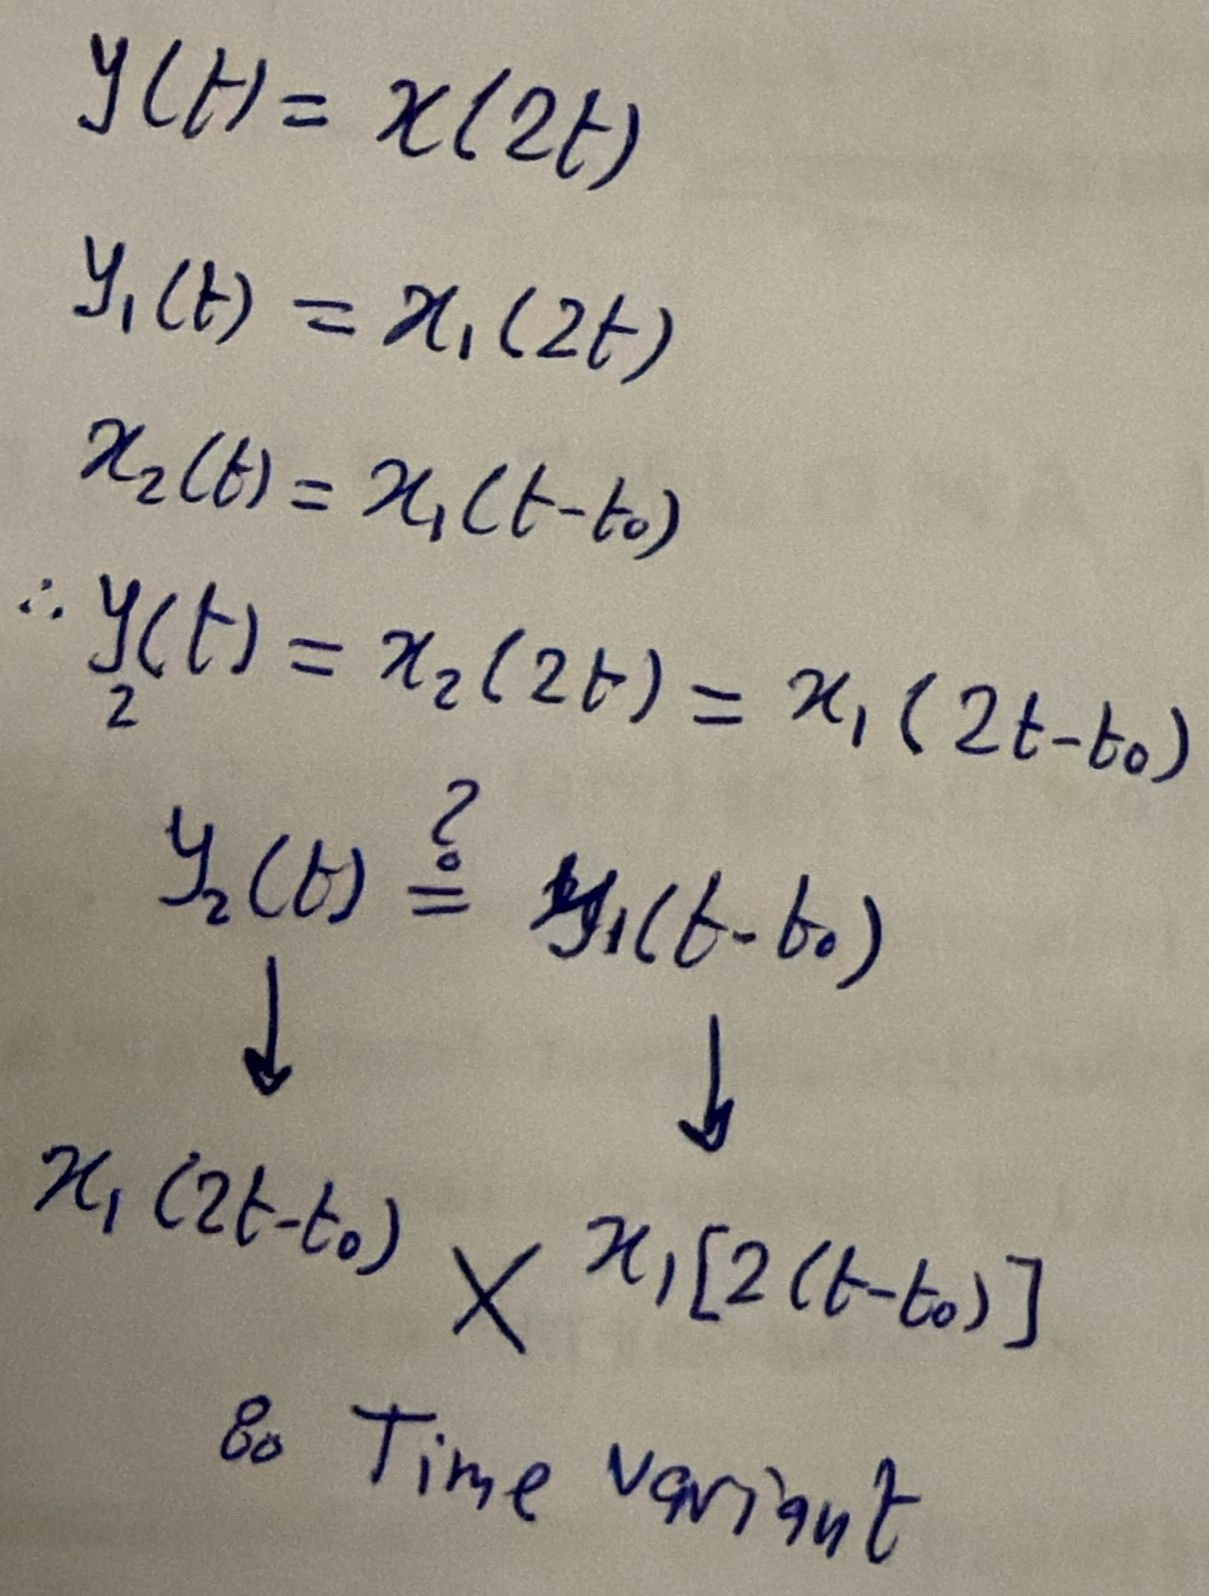 y(t) = x(2t)
y₁(t) = x₁(2t)
x₂(t) = x₁(t-t₀)
∴ y₂(t) = x₂(2t) = x₁(2t-t₀)
y₂(t) ≟ y₁(t-t₀)
↓ ↓
x₁(2t-t₀) X x₁[2(t-t₀)]
So Time variant